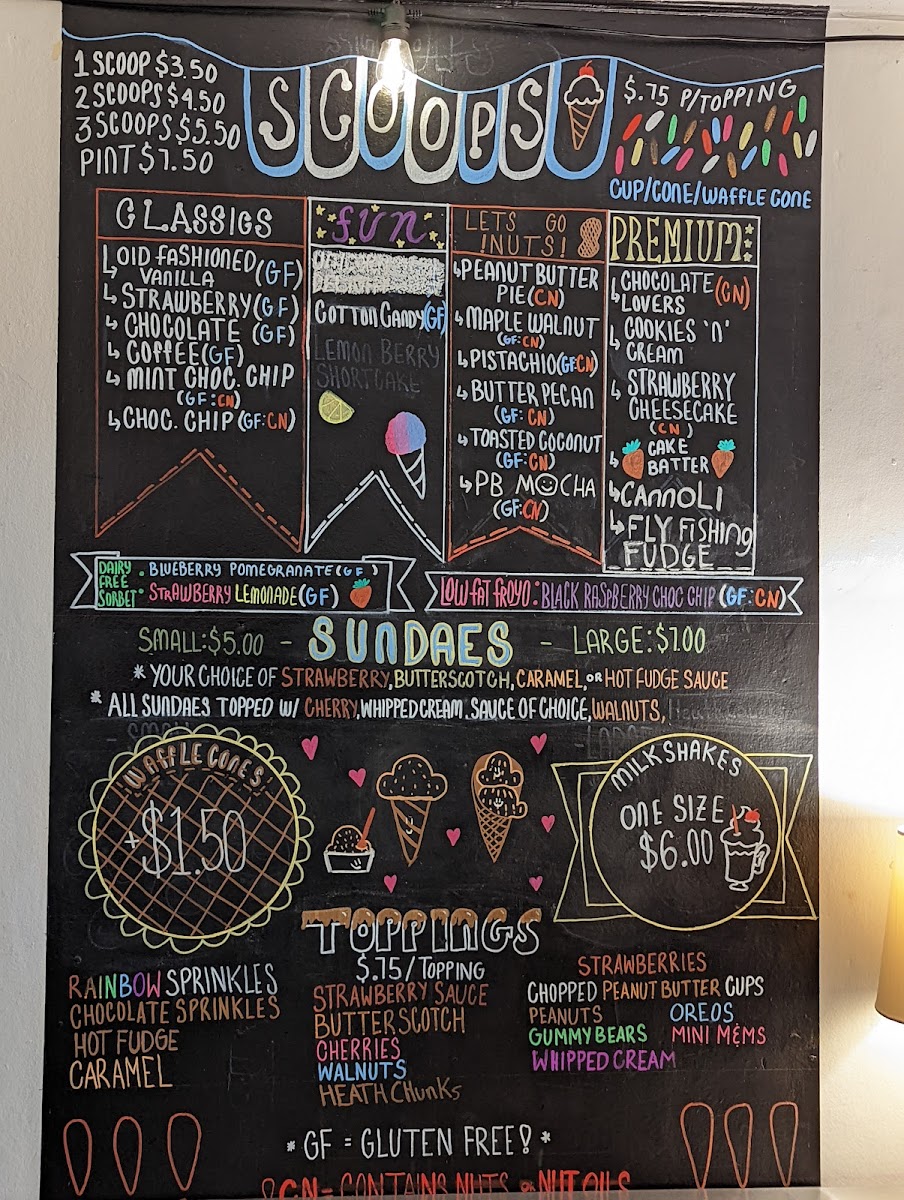 1 SCOOP $3.50
2 SCOOPS $4.50
3 SCOOPS $5.50
PINT $7.50
SCOOPS
$.75 P/TOPPING
CUP/CONE/WAFFLE CONE
CLASSICS
OLD FASHIONED (GF)
VANILLA
STRAWBERRY (GF)
CHOCOLATE (GF)
COFFEE (GF)
MINT CHOC. CHIP
(GF:CN)
CHOC. CHIP (GF:CN)
FUN
COTTON CANDY (GF)
LEMON BERRY
SHORTCAKE
LETS GO
!NUTS!
PEANUT BUTTER
PIE (CN)
MAPLE WALNUT
(GF:CN)
PISTACHIO (GF:CN)
BUTTER PECAN
(GF:CN)
TOASTED COCONUT
(GF:CN)
PB MOCHA
(GF:CN)
PREMIUM
CHOCOLATE (CN)
LOVERS
COOKIES 'N'
CREAM
STRAWBERRY
CHEESECAKE
(CN)
CAKE
BATTER
CANNOLI
FLY FISHING
FUDGE
DAIRY
FREE
SORBET
• BLUEBERRY POMEGRANATE (GF)
• STRAWBERRY LEMONADE (GF)
LOW FAT FROYO: BLACK RASPBERRY CHOC CHIP (GF:CN)
SMALL: $5.00 - SUNDAES - LARGE: $7.00
* YOUR CHOICE OF STRAWBERRY, BUTTERSCOTCH, CARAMEL, OR HOT FUDGE SAUCE
* ALL SUNDAES TOPPED W/ CHERRY, WHIPPED CREAM, SAUCE OF CHOICE, WALNUTS,
WAFFLE CONES
+$1.50
MILKSHAKES
ONE SIZE
$6.00
TOPPINGS
$.75/TOPPING
RAINBOW SPRINKLES
CHOCOLATE SPRINKLES
HOT FUDGE
CARAMEL
STRAWBERRY SAUCE
BUTTERSCOTCH
CHERRIES
WALNUTS
HEATH CHUNKS
STRAWBERRIES
CHOPPED PEANUT BUTTER CUPS
PEANUTS OREOS
GUMMY BEARS MINI M&MS
WHIPPED CREAM
* GF = GLUTEN FREE! *
! CN - CONTAINS NUTS OR NUT OILS